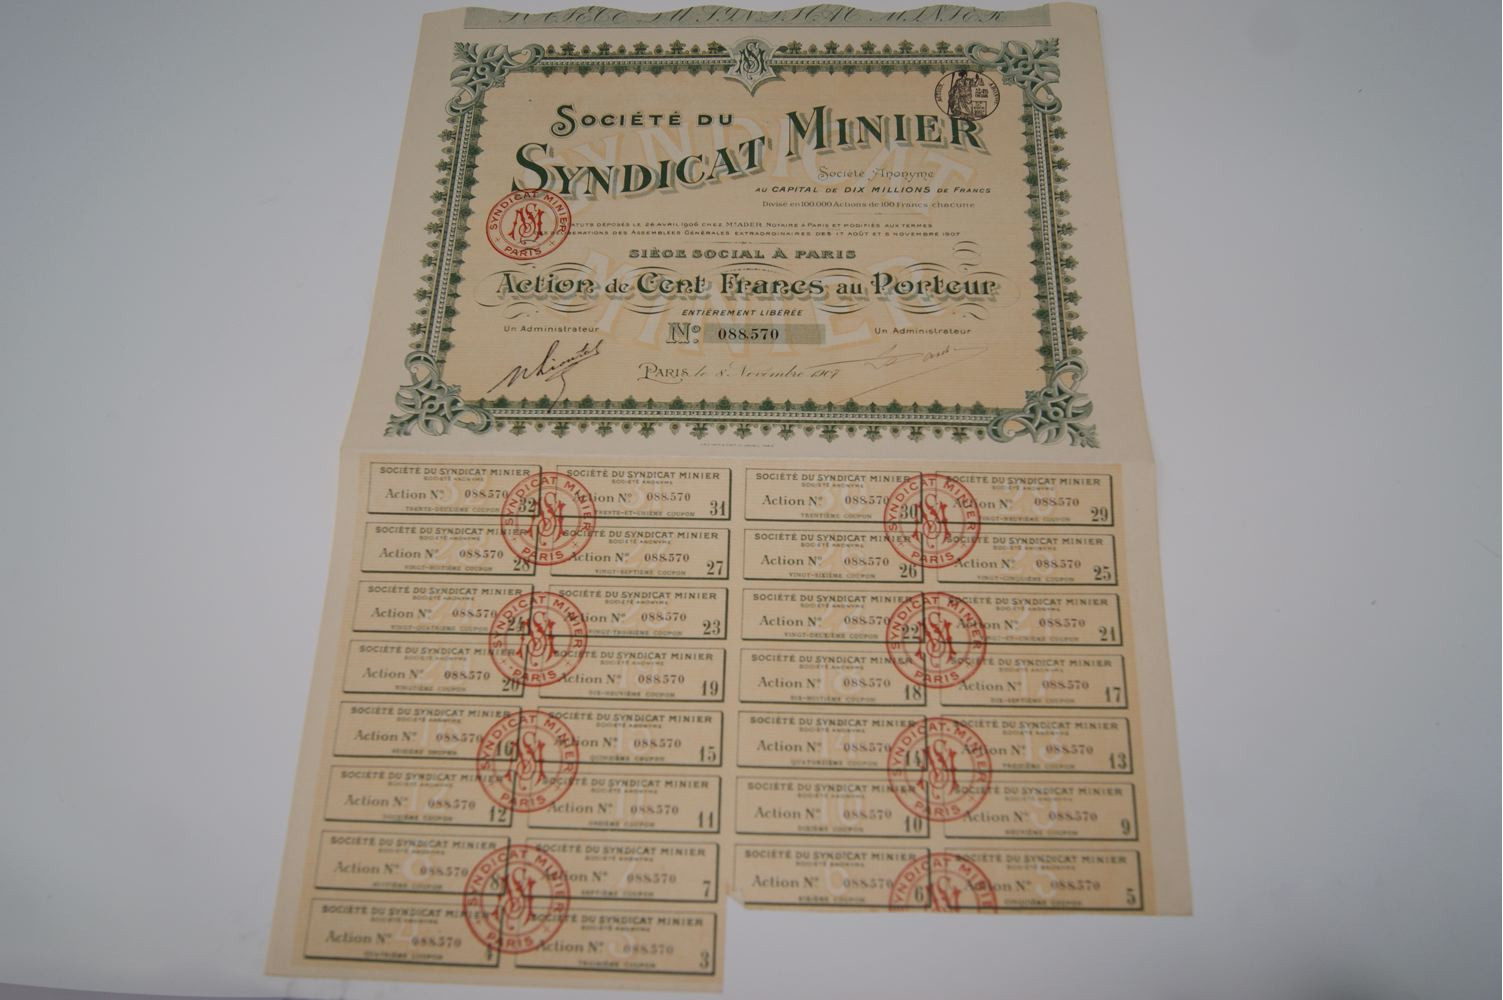 SOCIÉTÉ DU
SYNDICAT MINIER
Société Anonyme
AU CAPITAL DE DIX MILLIONS DE FRANCS
Divisé en 100.000 Actions de 100 Francs chacune
STATUTS DÉPOSÉS LE 26 AVRIL 1906 CHEZ Me ADER NOTAIRE À PARIS ET MODIFIÉS AUX TERMES
DES DÉLIBÉRATIONS DES ASSEMBLÉES GÉNÉRALES EXTRAORDINAIRES DES 17 AOÛT ET 5 NOVEMBRE 1907
SYNDICAT MINIER
PARIS
SIÈGE SOCIAL À PARIS
Action de Cent Francs au Porteur
ENTIÈREMENT LIBÉRÉE
Un Administrateur
No 088.570
Un Administrateur
PARIS, le 8 Novembre 1907
SOCIÉTÉ DU SYNDICAT MINIER
SOCIÉTÉ ANONYME
Action No 088.570 32
TRENTE-DEUXIÈME COUPON
SOCIÉTÉ DU SYNDICAT MINIER
SOCIÉTÉ ANONYME
Action No 088.570 31
TRENTE-ET-UNIÈME COUPON
SOCIÉTÉ DU SYNDICAT MINIER
SOCIÉTÉ ANONYME
Action No 088.570 30
TRENTIÈME COUPON
SOCIÉTÉ DU SYNDICAT MINIER
SOCIÉTÉ ANONYME
Action No 088.570 29
VINGT-NEUVIÈME COUPON
SOCIÉTÉ DU SYNDICAT MINIER
SOCIÉTÉ ANONYME
Action No 088.570 28
VINGT-HUITIÈME COUPON
SOCIÉTÉ DU SYNDICAT MINIER
SOCIÉTÉ ANONYME
Action No 088.570 27
VINGT-SEPTIÈME COUPON
SOCIÉTÉ DU SYNDICAT MINIER
SOCIÉTÉ ANONYME
Action No 088.570 26
VINGT-SIXIÈME COUPON
SOCIÉTÉ DU SYNDICAT MINIER
SOCIÉTÉ ANONYME
Action No 088.570 25
VINGT-CINQUIÈME COUPON
SOCIÉTÉ DU SYNDICAT MINIER
SOCIÉTÉ ANONYME
Action No 088.570 24
VINGT-QUATRIÈME COUPON
SOCIÉTÉ DU SYNDICAT MINIER
SOCIÉTÉ ANONYME
Action No 088.570 23
VINGT-TROISIÈME COUPON
SOCIÉTÉ DU SYNDICAT MINIER
SOCIÉTÉ ANONYME
Action No 088.570 22
VINGT-DEUXIÈME COUPON
SOCIÉTÉ DU SYNDICAT MINIER
SOCIÉTÉ ANONYME
Action No 088.570 21
VINGT-ET-UNIÈME COUPON
SOCIÉTÉ DU SYNDICAT MINIER
SOCIÉTÉ ANONYME
Action No 088.570 20
VINGTIÈME COUPON
SOCIÉTÉ DU SYNDICAT MINIER
SOCIÉTÉ ANONYME
Action No 088.570 19
DIX-NEUVIÈME COUPON
SOCIÉTÉ DU SYNDICAT MINIER
SOCIÉTÉ ANONYME
Action No 088.570 18
DIX-HUITIÈME COUPON
SOCIÉTÉ DU SYNDICAT MINIER
SOCIÉTÉ ANONYME
Action No 088.570 17
DIX-SEPTIÈME COUPON
SOCIÉTÉ DU SYNDICAT MINIER
SOCIÉTÉ ANONYME
Action No 088.570 16
SEIZIÈME COUPON
SOCIÉTÉ DU SYNDICAT MINIER
SOCIÉTÉ ANONYME
Action No 088.570 15
QUINZIÈME COUPON
SOCIÉTÉ DU SYNDICAT MINIER
SOCIÉTÉ ANONYME
Action No 088.570 14
QUATORZIÈME COUPON
SOCIÉTÉ DU SYNDICAT MINIER
SOCIÉTÉ ANONYME
Action No 088.570 13
TREIZIÈME COUPON
SOCIÉTÉ DU SYNDICAT MINIER
SOCIÉTÉ ANONYME
Action No 088.570 12
DOUZIÈME COUPON
SOCIÉTÉ DU SYNDICAT MINIER
SOCIÉTÉ ANONYME
Action No 088.570 11
ONZIÈME COUPON
SOCIÉTÉ DU SYNDICAT MINIER
SOCIÉTÉ ANONYME
Action No 088.570 10
DIXIÈME COUPON
SOCIÉTÉ DU SYNDICAT MINIER
SOCIÉTÉ ANONYME
Action No 088.570 9
NEUVIÈME COUPON
SOCIÉTÉ DU SYNDICAT MINIER
SOCIÉTÉ ANONYME
Action No 088.570 8
HUITIÈME COUPON
SOCIÉTÉ DU SYNDICAT MINIER
SOCIÉTÉ ANONYME
Action No 088.570 7
SEPTIÈME COUPON
SOCIÉTÉ DU SYNDICAT MINIER
SOCIÉTÉ ANONYME
Action No 088.570 6
SIXIÈME COUPON
SOCIÉTÉ DU SYNDICAT MINIER
SOCIÉTÉ ANONYME
Action No 088.570 5
CINQUIÈME COUPON
SOCIÉTÉ DU SYNDICAT MINIER
SOCIÉTÉ ANONYME
Action No 088.570 4
QUATRIÈME COUPON
SOCIÉTÉ DU SYNDICAT MINIER
SOCIÉTÉ ANONYME
Action No 088.570 3
TROISIÈME COUPON